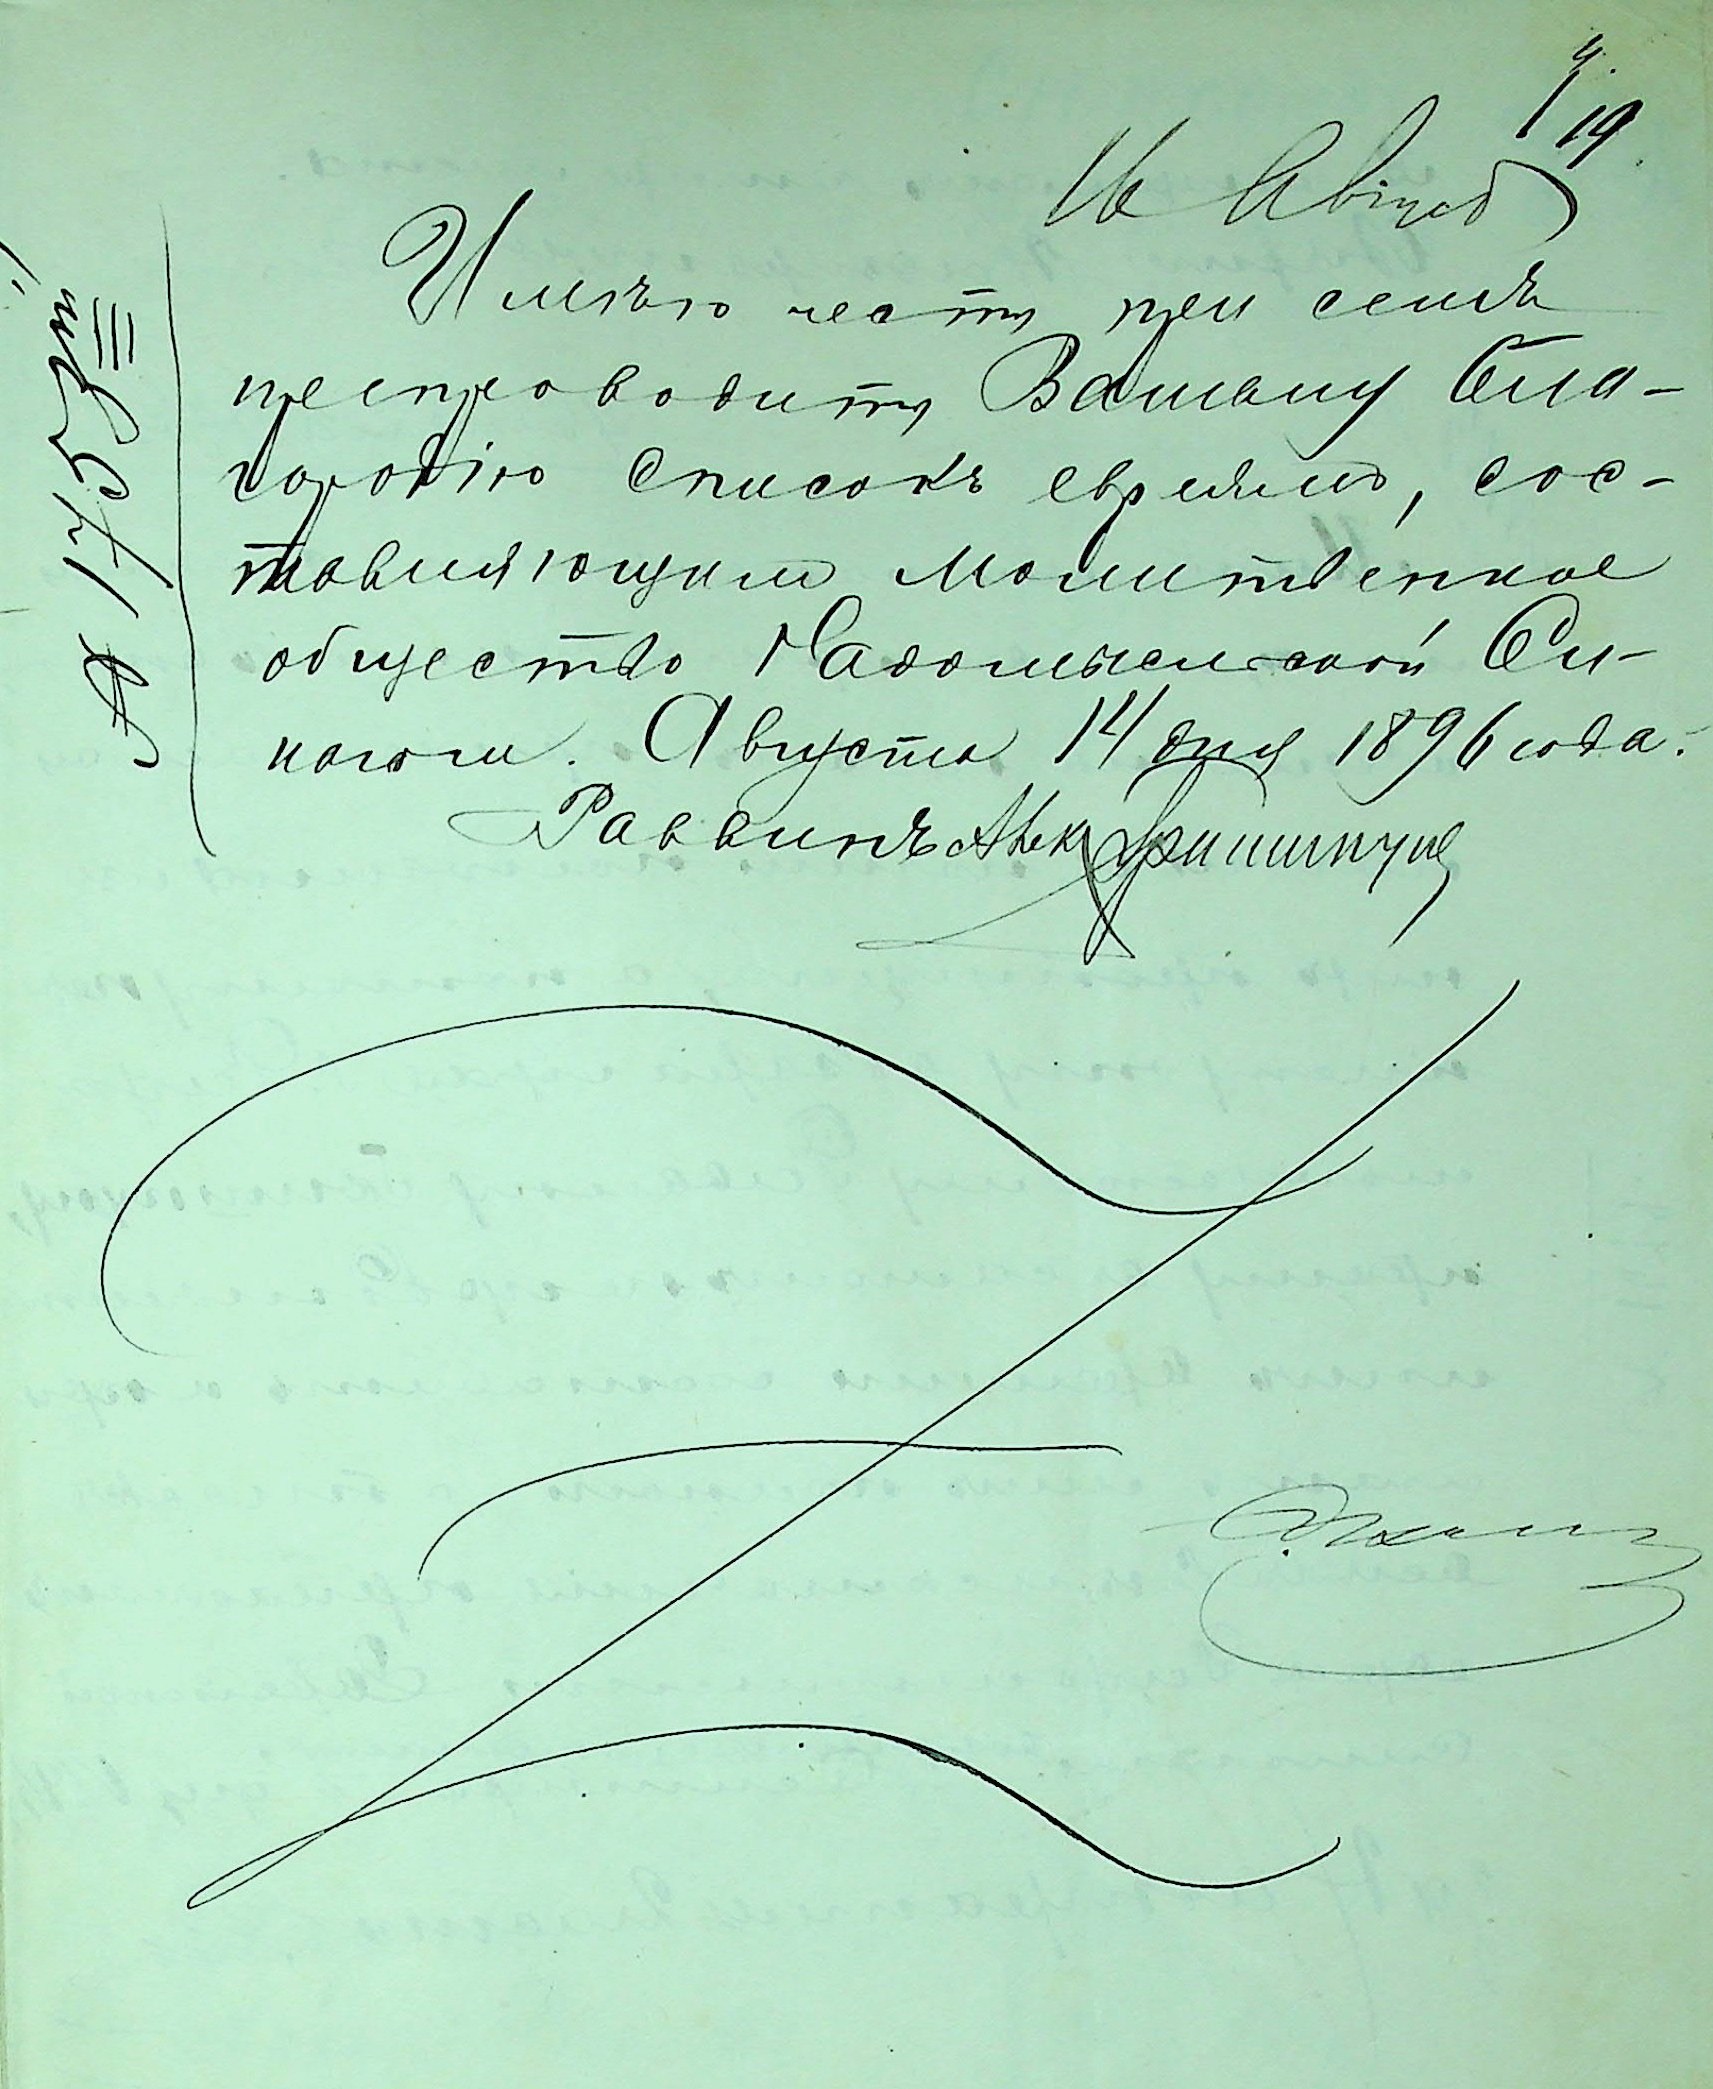 19
16 Август
Имѣю честь при семъ
препроводить Вашему Бла-
городію списокъ евреямъ, сос-
тавляющимъ молитвенное
общество Радомысльской Си-
нагоги. Августа 14 дня 1896 года.
Раввинъ
№ 1753
III